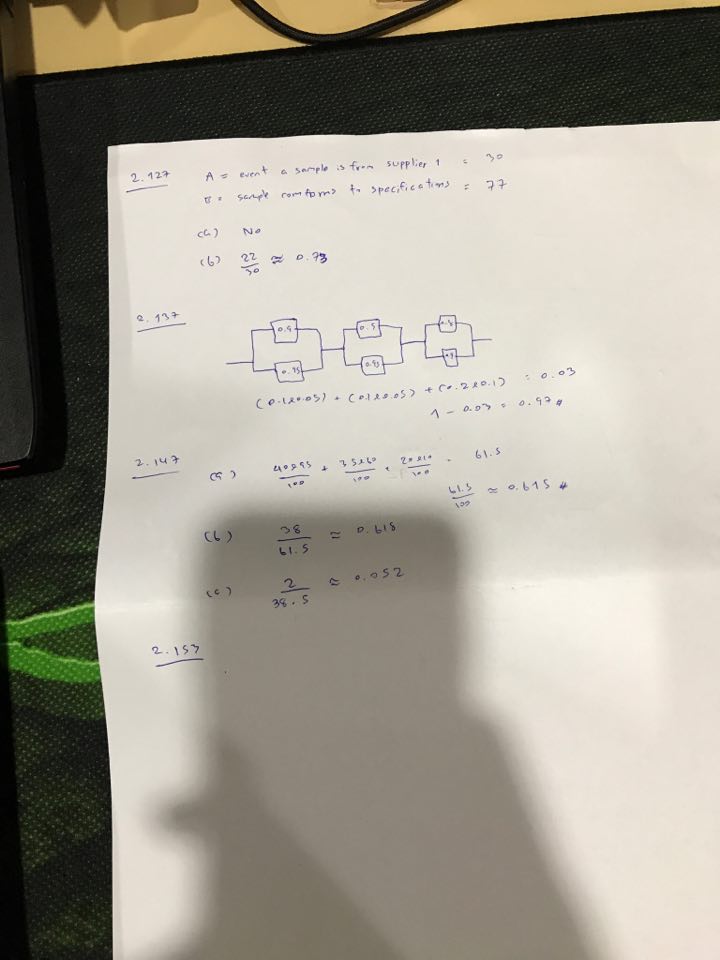 2.127 A = event a sample is from supplier 1 = 30
B = sample comforms to specifications = 77
(a) No
(b) 22/30 ≈ 0.73
2.137
0.9 0.9
0.95 0.95
(0.1x0.05) + (0.1x0.05) + (0.2x0.1) = 0.03
1 - 0.03 = 0.97 #
2.147 (a) 40x95/100 + 35x60/100 + 20x10/100 = 61.5
61.5/100 ≈ 0.615 #
(b) 38/61.5 ≈ 0.618
(c) 2/38.5 ≈ 0.052
2.153